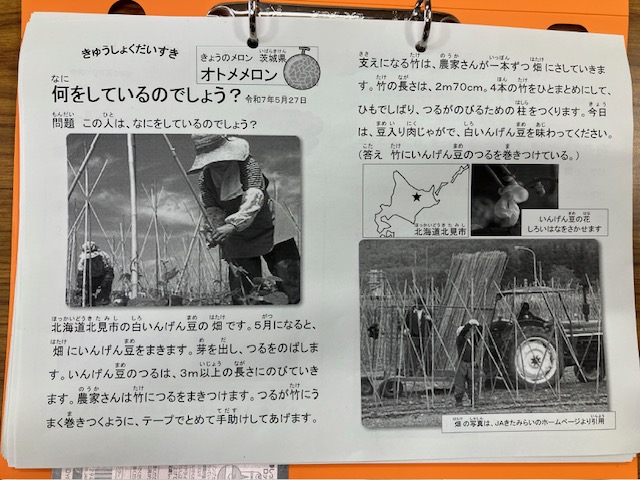 きゅうしょくだいすき
きょうのメロン 茨城県
オトメメロン
何をしているのでしょう？ 令和7年5月27日
問題 この人は、なにをしているのでしょう？
北海道北見市の白いんげん豆の畑です。5月になると、
畑にいんげん豆をまきます。芽を出し、つるをのばしま
す。いんげん豆のつるは、3m以上の長さにのびていき
ます。農家さんは竹につるをまきつけます。つるが竹にう
まく巻きつくように、テープでとめて手助けしてあげます。
支えになる竹は、農家さんが一本ずつ畑にさしていきま
す。竹の長さは、2m70cm。4本の竹をひとまとめにして、
ひもでしばり、つるがのびるための柱をつくります。今日
は、豆入り肉じゃがで、白いんげん豆を味わってください。
(答え 竹にいんげん豆のつるを巻きつけている。)
北海道北見市
いんげん豆の花
しろいはなをさかせます
畑の写真は、JAきたみらいのホームページより引用